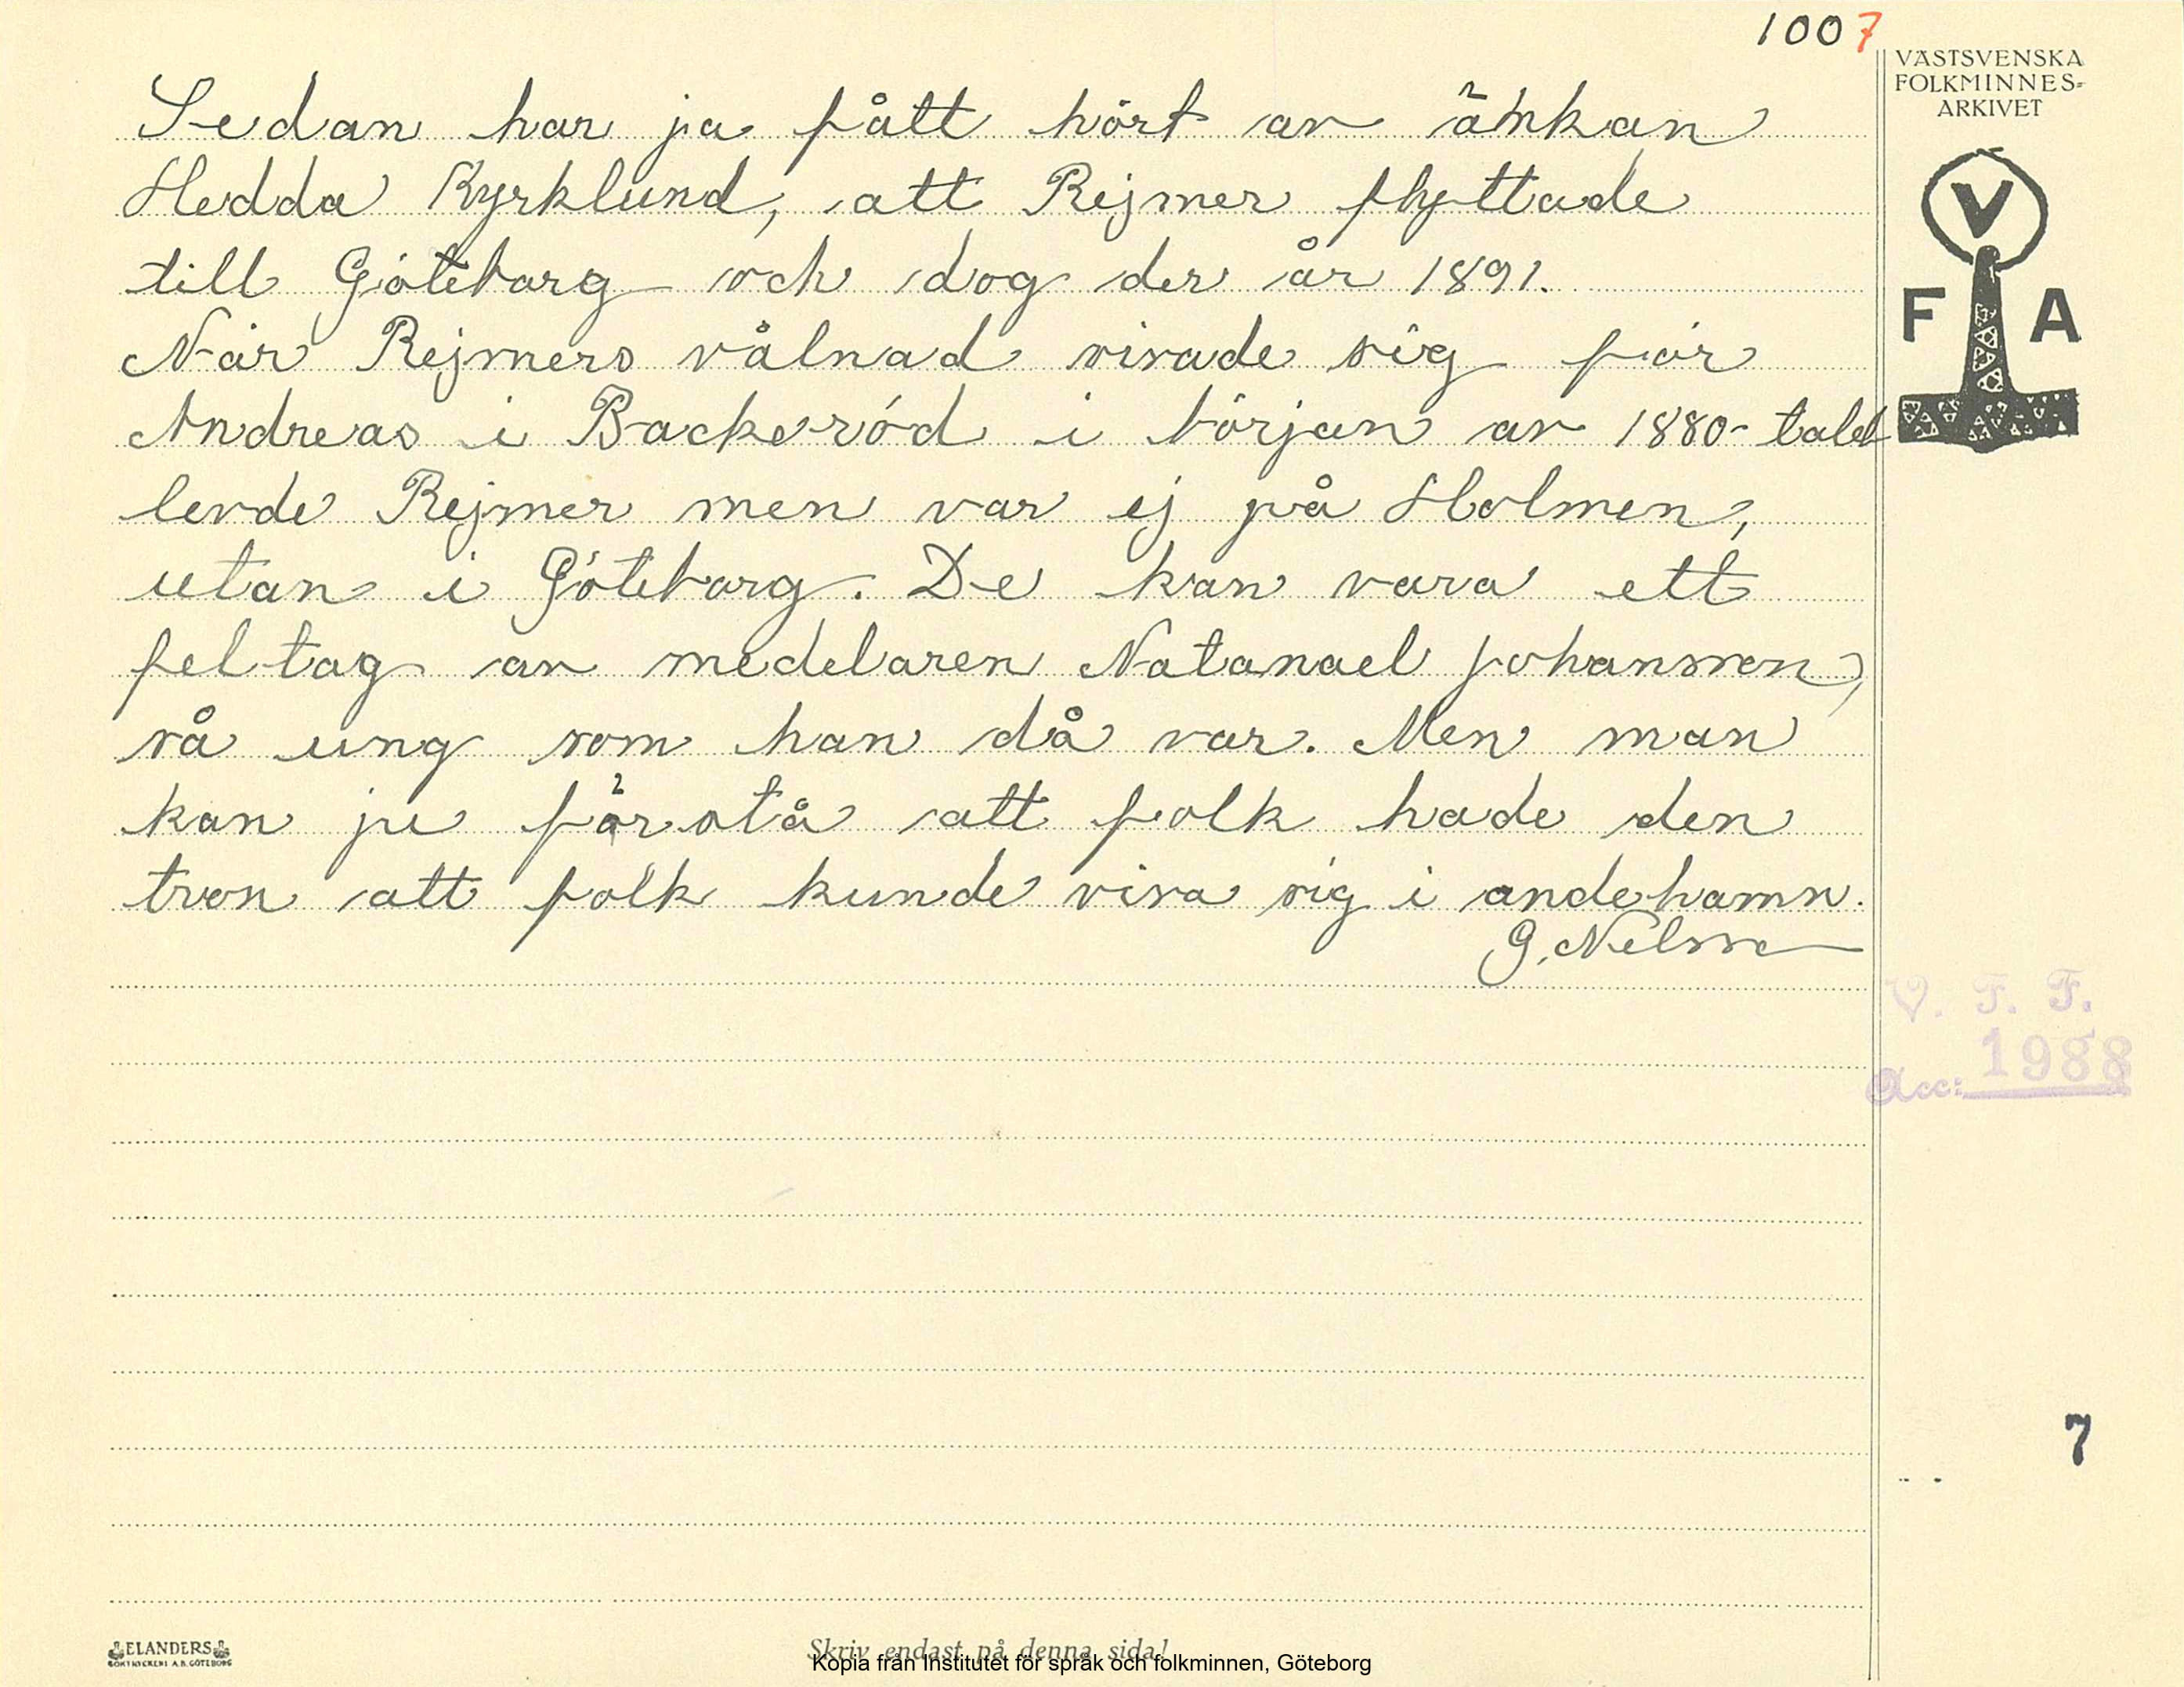 1007
VÄSTSVENSKA
FOLKMINNES-
ARKIVET
V
F A
Sedan har ja fått hört av änkan
Hedda Kyrklund, att Rejmer flyttade
till Göteborg och dog der år 1891.
När Rejmers vålnad visade sig för
Andreas i Backeröd i början av 1880-talet
levde Rejmer men var ej på Holmen,
utan i Göteborg. De kan vara ett
feltag av medelaren Natanael Johansson,
så ung som han då var. Men man
kan ju förstå att folk hade den
tron att folk kunde visa sig i andehamn.
G. Nelsson
V. F. F.
Acc: 1988
7
ELANDERS
BOKTRYCKERI A.B. GÖTEBORG
Skriv endast på denna sida!
Kopia från Institutet för språk och folkminnen, Göteborg